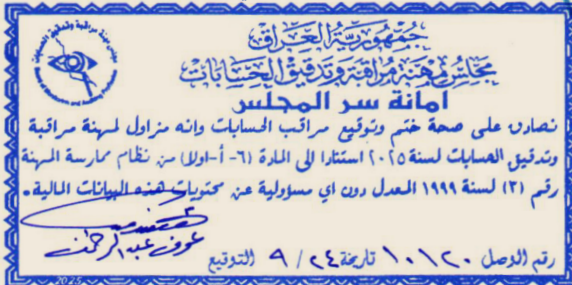 جمهورية العراق
مجلس مهنة مراقبة وتدقيق الحسابات
امانة سر المجلس
نصادق على صحة ختم وتوقيع مراقب الحسابات وانه مزاول لمهنة مراقبة
وتدقيق الحسابات لسنة ٢٠٢٥ استنادا الى المادة (٦- أ-اولا) من نظام ممارسة المهنة
رقم (٣) لسنة ١٩٩٩ المعدل دون اي مسؤولية عن محتويات هذه البيانات المالية.
رقم الوصل ١٠١٢٠ تاريخة ٢٤ / ٩ التوقيع
عوف عبد الرحمن
2025